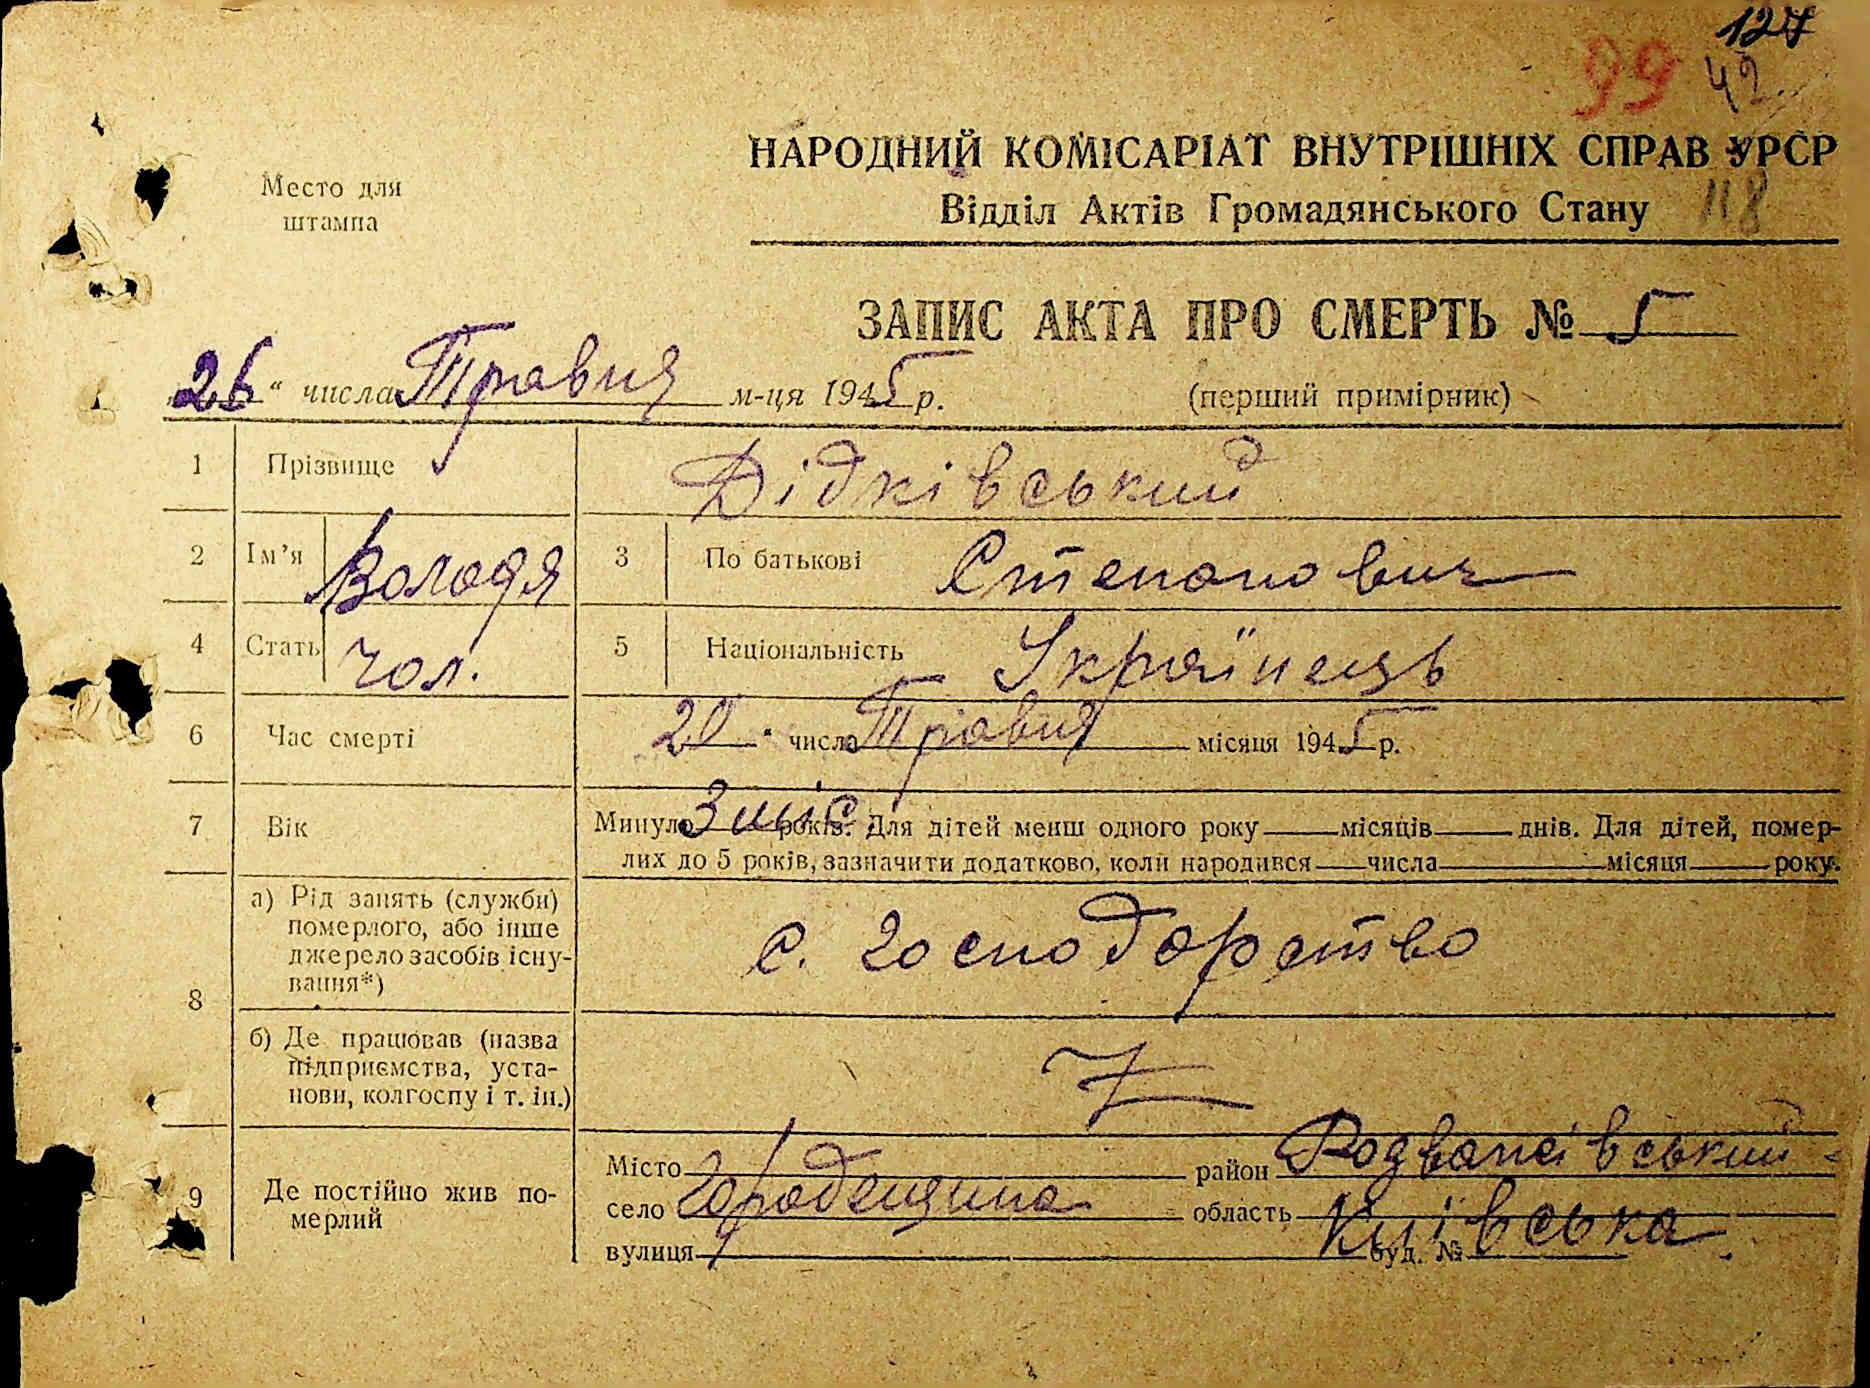 127
99 42
НАРОДНИЙ КОМІСАРІАТ ВНУТРІШНІХ СПРАВ УРСР
Место для
штампа
Відділ Актів Громадянського Стану 118
ЗАПИС АКТА ПРО СМЕРТЬ № 5
„26“ числа Травня м-ця 1945 р. (перший примірник)
1 Прізвище Дідківський
2 Ім’я Володя 3 По батькові Степанович
4 Стать чол. 5 Національність Українець
6 Час смерті 20 “ числа Травня місяця 1945 р.
7 Вік Минуло 3 міс років. Для дітей менш одного року місяців днів. Для дітей, помер-
лих до 5 років, зазначити додатково, коли народився числа місяця року.
8 а) Рід занять (служби)
померлого, або інше
джерело засобів існу-
вання*)
с. господарство
б) Де працював (назва
підприємства, уста-
нови, колгоспу і т. ін.)
9 Де постійно жив по-
мерлий
Місто район Розважівський
село Городещина область Київська
вулиця буд. №